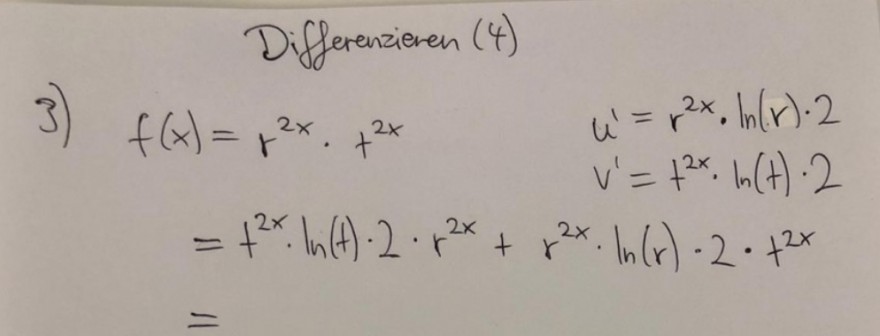 Differenzieren (4)
3) f(x) = r^2x · t^2x
u' = r^2x · ln(r) · 2
v' = t^2x · ln(t) · 2
= t^2x · ln(t) · 2 · r^2x + r^2x · ln(r) · 2 · t^2x
=